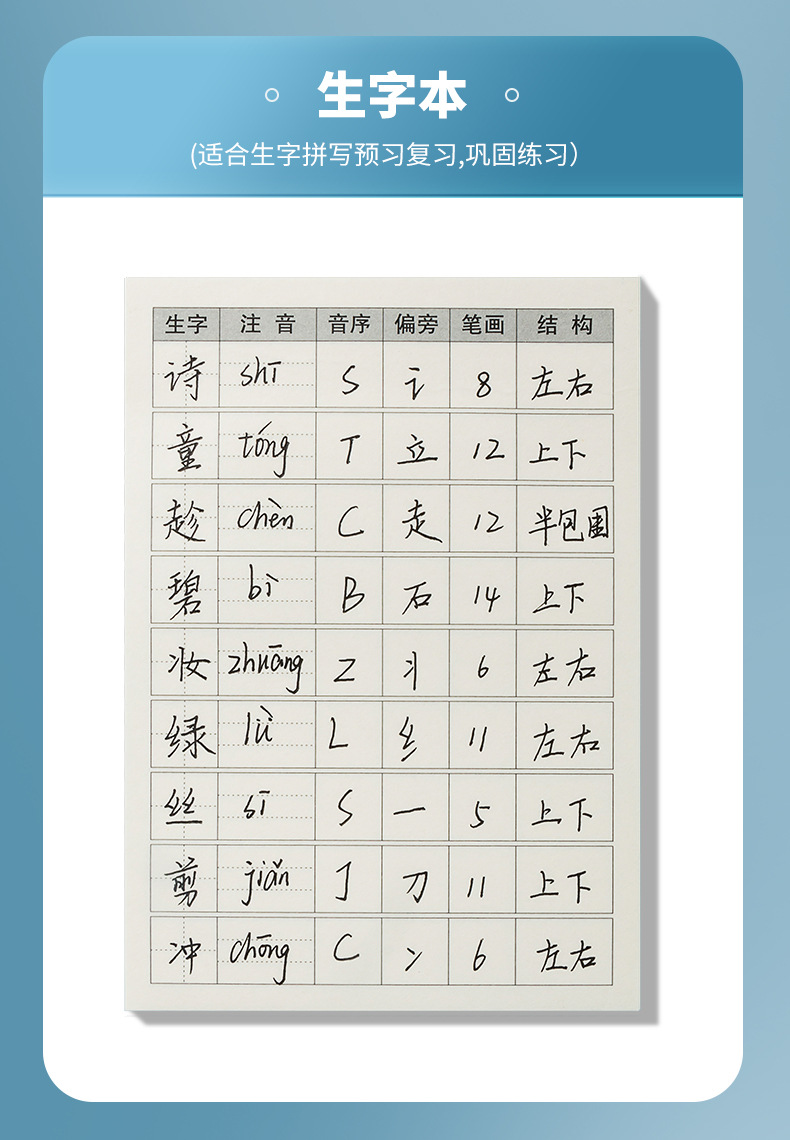 生字本
(适合生字拼写预习复习,巩固练习)
生字 注音 音序 偏旁 笔画 结构
诗 shī S 讠 8 左右
童 tóng T 立 12 上下
趁 chèn C 走 12 半包围
碧 bì B 石 14 上下
妆 zhuāng Z 丬 6 左右
绿 lǜ L 纟 11 左右
丝 sī S 一 5 上下
剪 jiǎn J 刀 11 上下
冲 chōng C 冫 6 左右